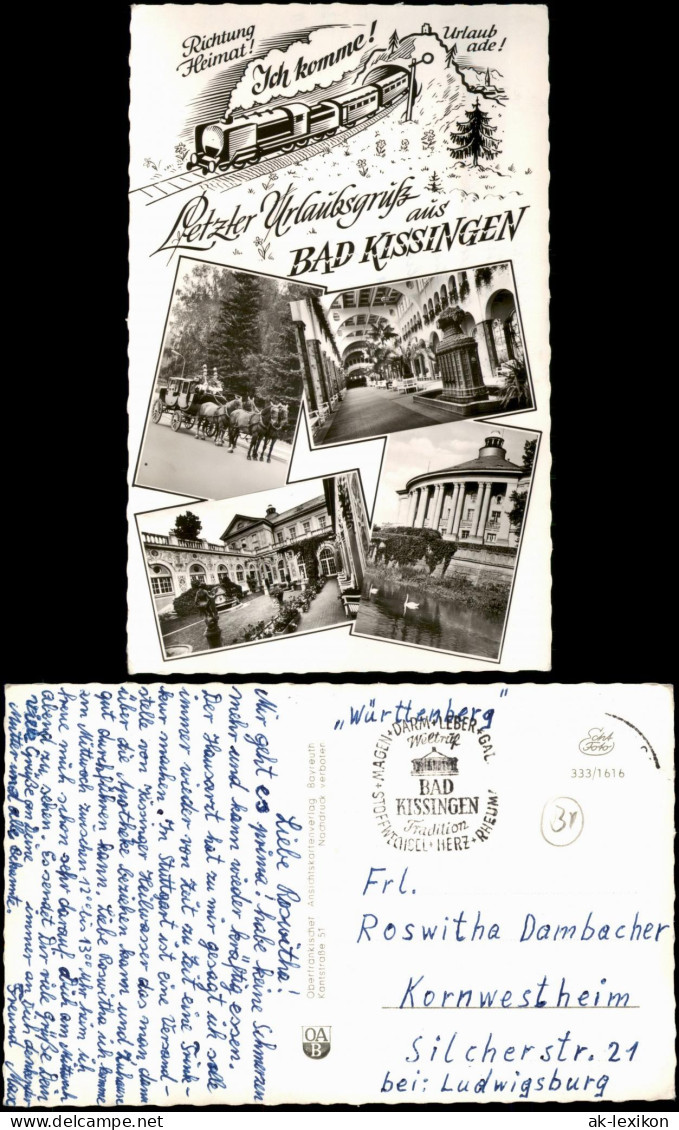 Richtung
Heimat!
Ich komme!
Urlaub
ade!
Letzter Urlaubsgruß
aus
BAD KISSINGEN
Liebe Roswitha!
Mir geht es prima! habe keine Schmerzen
mehr und kann wieder kräftig essen.
Der Hausarzt hat zu mir gesagt ich soll
immer wieder von Zeit zu Zeit eine Trink-
kur machen. In Stuttgart ist eine Versand-
stelle von Kissinger Heilwasser das man dann
über die Apotheke beziehen kann und zuhause
gut durchführen kann. Liebe Roswitha ich komme
am Mittwoch zwischen 12⁰⁰ bis 13⁰⁰ Uhr heim ich
freue mich schon sehr darauf Dich am Mittwoch
Abend zu sehen. Es sendet Dir viele Grüße Dein
immer an Dich denkender
Freund
viele Grüße an Deine
Mutter und alle Bekannte.
Oberfränkischer Ansichtskartenverlag Bayreuth
Kantstraße 51 Nachdruck verboten
OA
B
„Württemberg"
STOFFWECHSEL + MAGEN + DARM + LEBER + GALLE
Weltruf
BAD
KISSINGEN
Tradition
HERZ + RHEUMA
Echt
Foto
333/1616
Frl.
Roswitha Dambacher
Kornwestheim
Silcherstr. 21
bei: Ludwigsburg
ak-lexikon